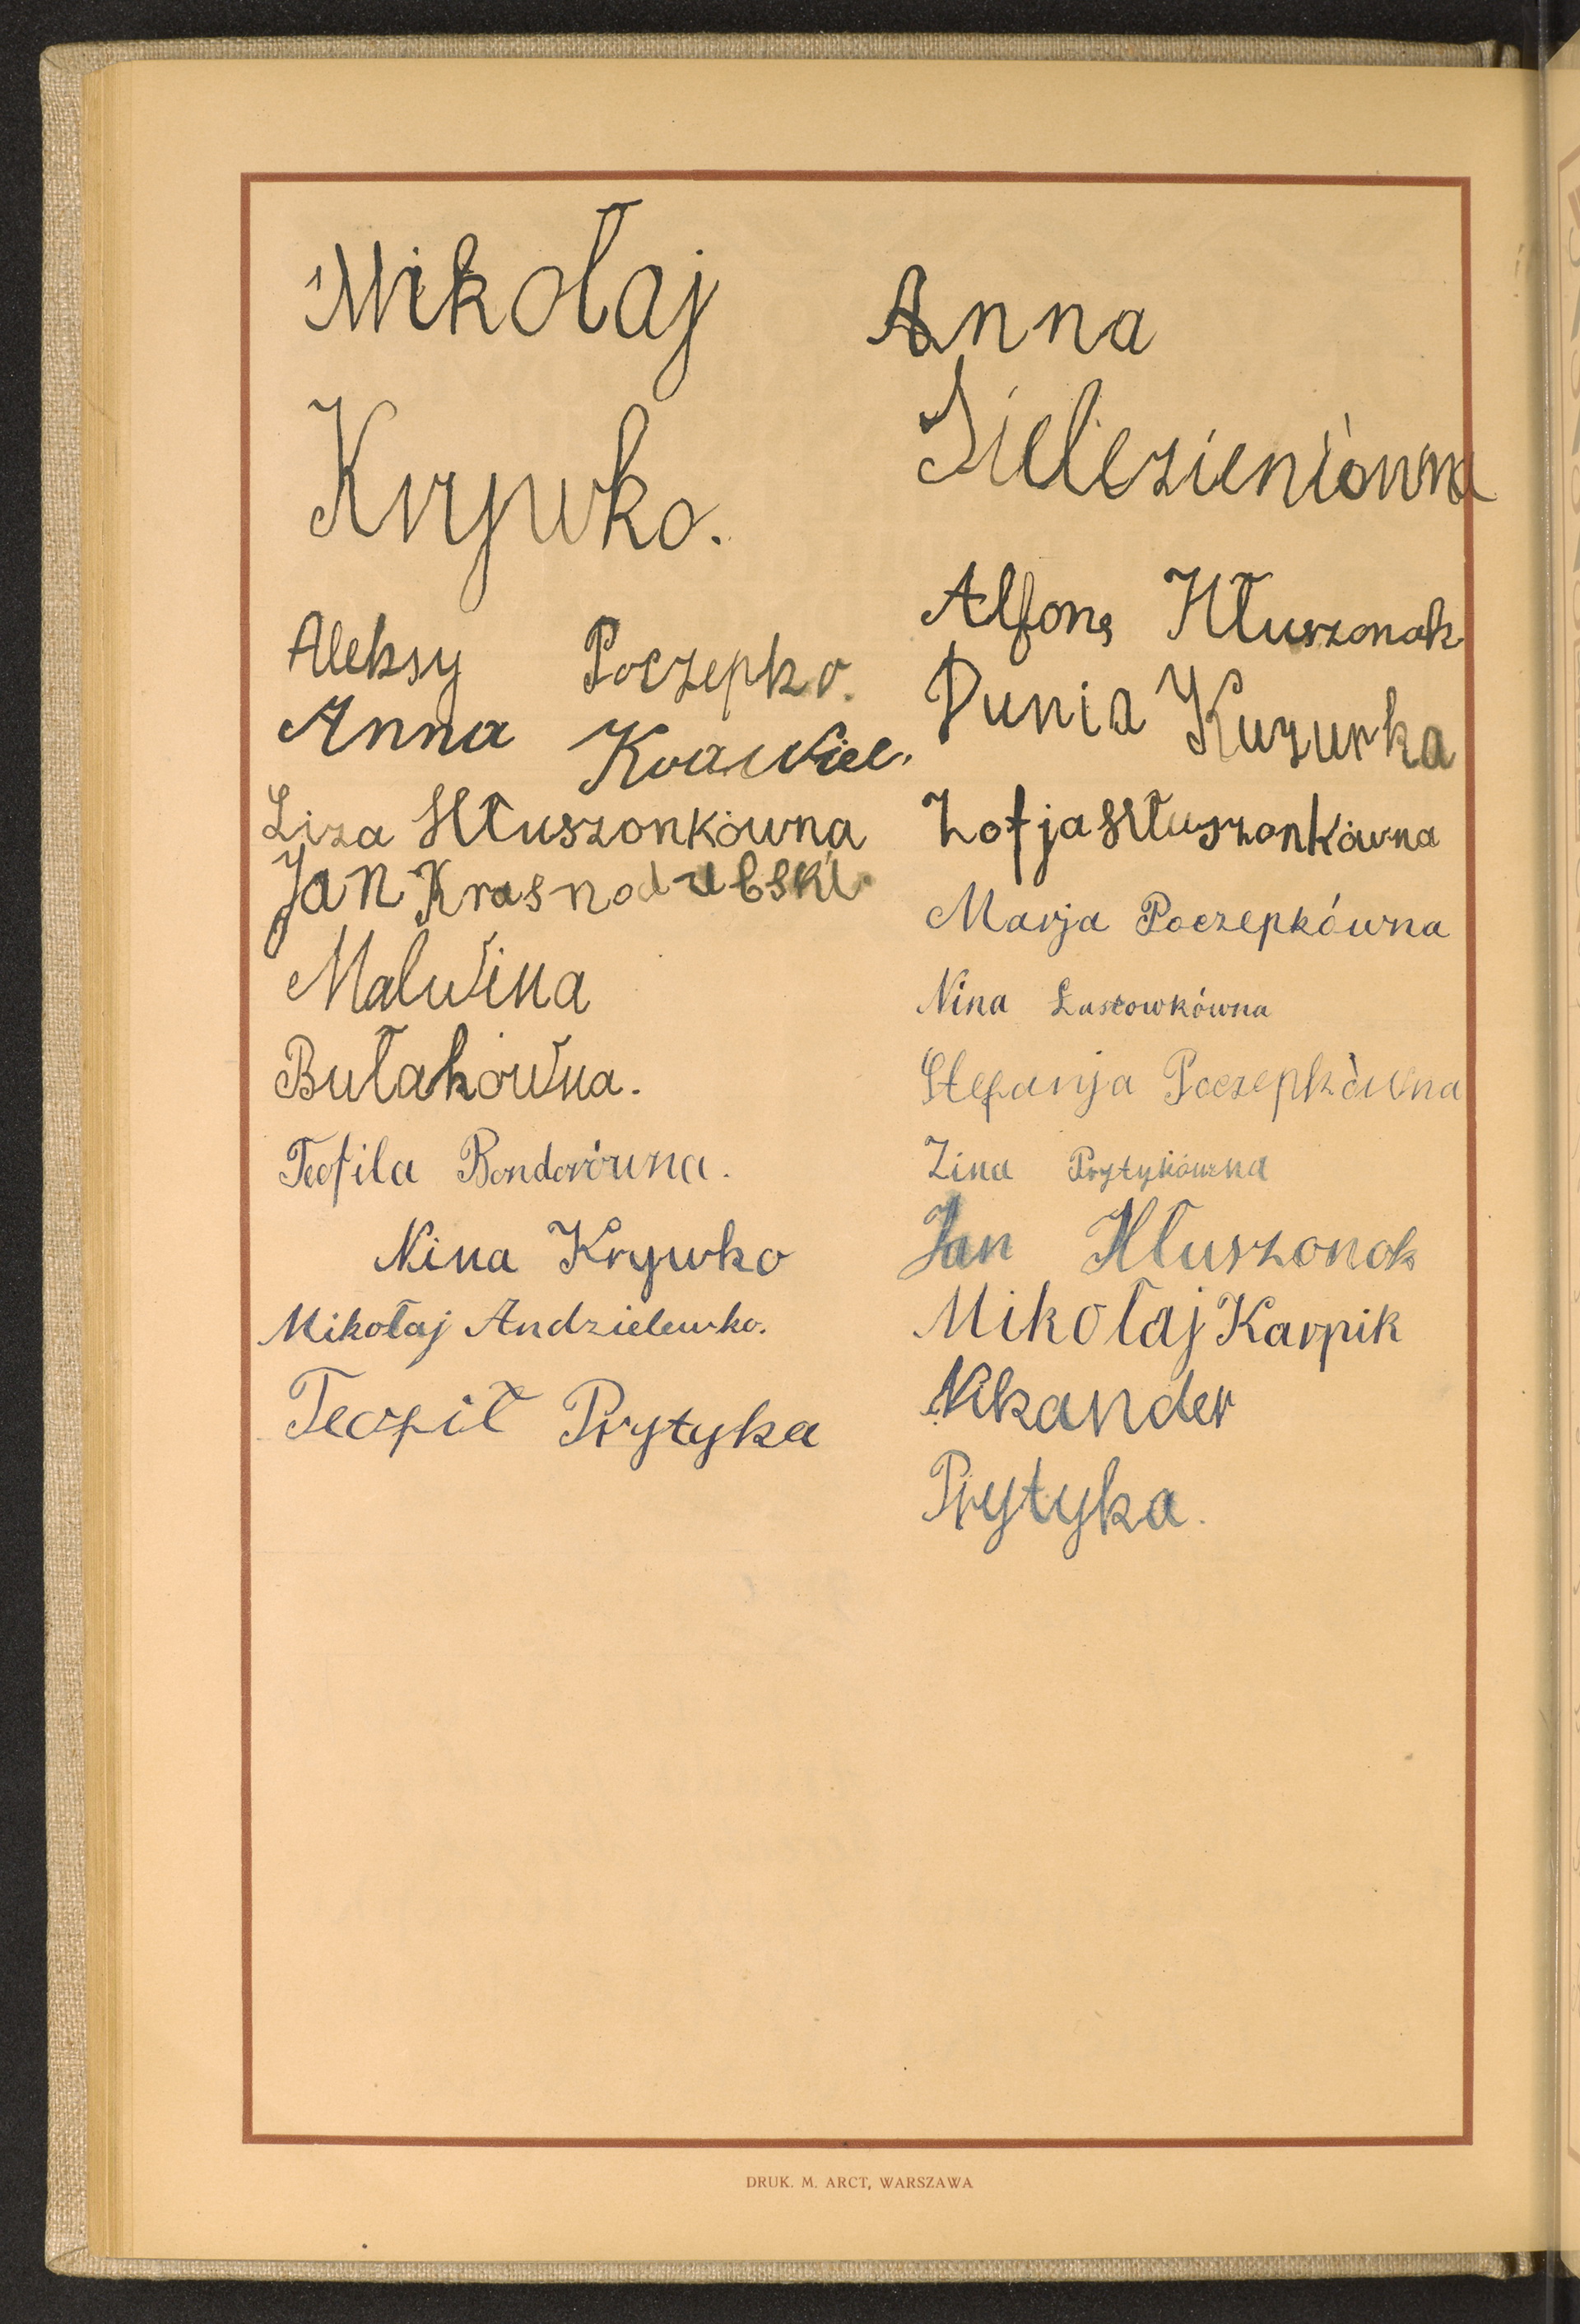 Mikołaj
Krywko.
Aleksy Poczepko.
Anna Krawiec.
Liza Hłuszonkówna
Jan Krasnodubski
Malwina
Bułakówna.
Teofila Bondorówna.
Nina Krywko
Mikołaj Andzielewko.
Teofił Prytyka
Anna
Sielezieniówna
Alfons Hłuszonok
Dunia Kuzurka
Zofja Hłuszonkówna
Marja Poczepkówna
Nina Łastowkówna
Stefanja Poczepkówna
Zina Prytykówna
Jan Hłuszonok
Mikołaj Karpik
Nikander
Prytyka.
DRUK. M. ARCT, WARSZAWA